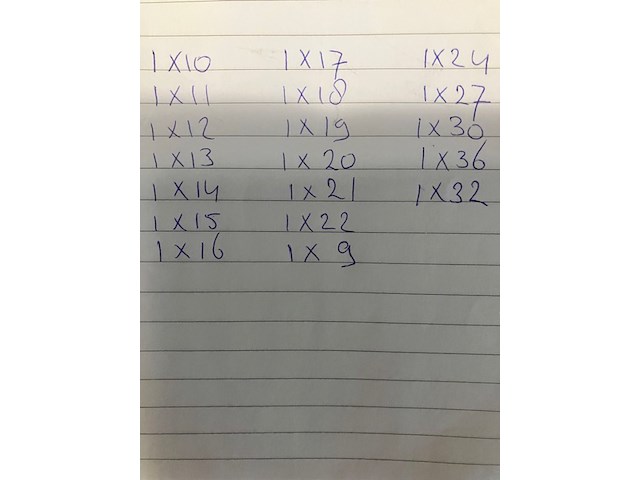 1 X 10
1 X 11
1 X 12
1 X 13
1 X 14
1 X 15
1 X 16
1 X 17
1 X 18
1 X 19
1 X 20
1 X 21
1 X 22
1 X 9
1 X 24
1 X 27
1 X 30
1 X 36
1 X 32